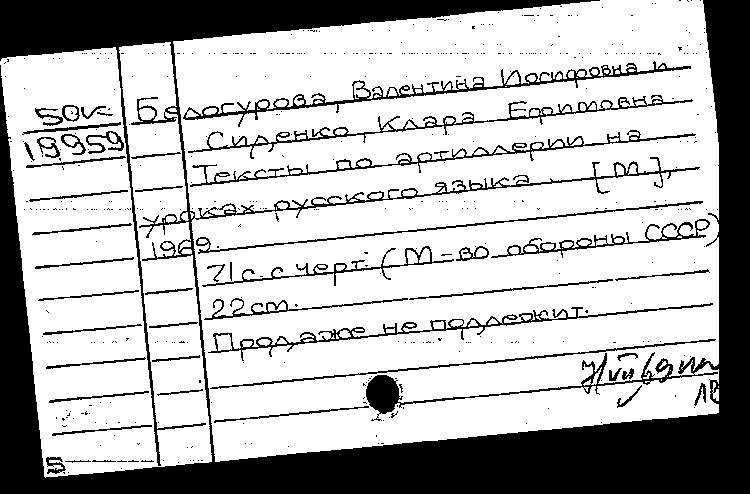 50к= Белогурова, Валентина Иосифовна и
19959 Сиденко, Клара Ефимовна
Тексты по артиллерии на
уроках русского языка. [М.],
1969.
71с. с черт. (М-во обороны СССР)
22см.
Продаже не подлежит.
18